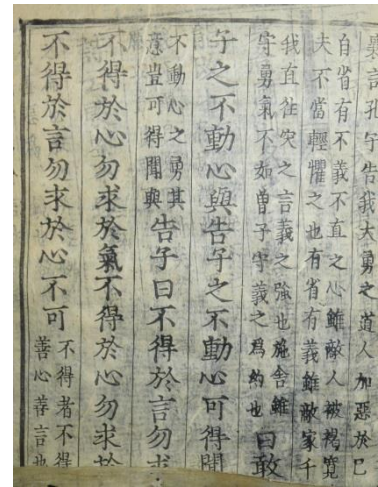 襄言孔子告我大勇之道人加惡於己
自省有不義不直之心雖敵人被褐寬
夫不當輕懼之也有省有義雖敵家千
我直往突之言義之強也施舍雖
守勇氣不如曾子守義之為約也
曰敢
子之不動心與告子之不動心可得聞
不動心之勇其
意豈可得聞與
告子曰不得於言勿求
不得於心勿求於氣不得於心勿求於
不得於言勿求於心不可
不得者不得
善心善言也